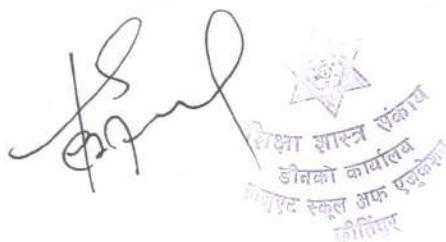 शिक्षा शास्त्र संकाय
डीनको कार्यालय
ग्राजुएट स्कूल अफ एजुकेशन
कीर्तिपुर